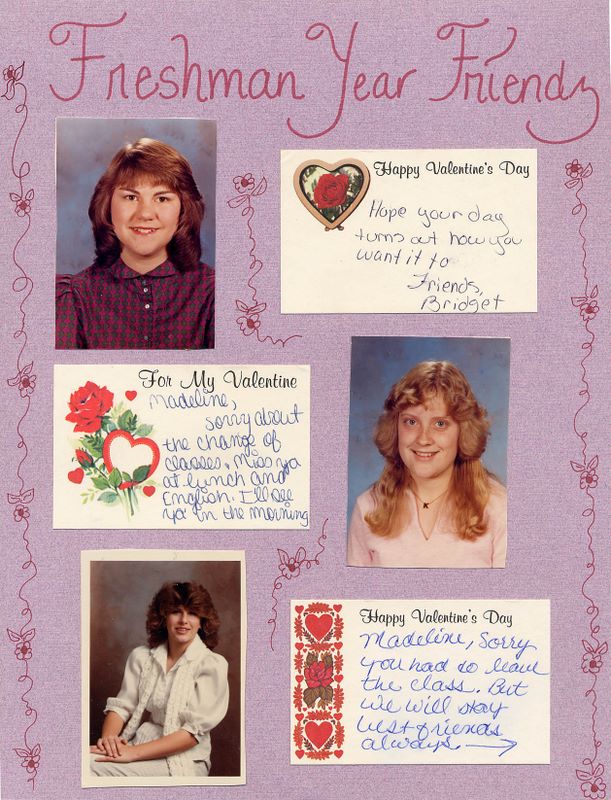 Freshman Year Friends
Happy Valentine's Day
Hope your day
turns out how you
want it to
Friends,
Bridget
For My Valentine
Madeline,
sorry about
the change of
classes. Miss ya
at lunch and
English. I'll see
ya in the morning
K
Happy Valentine's Day
Madeline, Sorry
you had to leave
the class. But
we will stay
best friends
always.